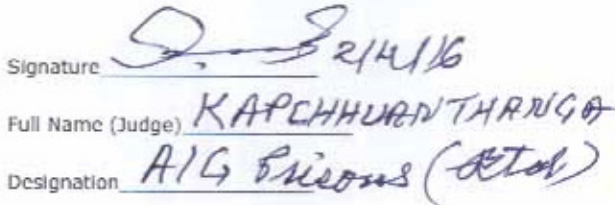 Signature 2/4/16
Full Name (Judge) KAPCHHUANTHANGA
Designation AIG Prisons (Retd)